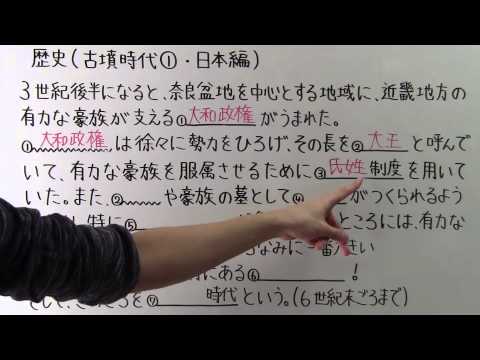 歴史(古墳時代①・日本編)
3世紀後半になると、奈良盆地を中心とする地域に、近畿地方の
有力な豪族が支える①大和政権がうまれた。
①大和政権は徐々に勢力をひろげ、その長を②大王と呼んで
いて、有力な豪族を服属させるために③氏姓制度を用いて
いた。また、②や豪族の墓として④がつくられるよう
し、特に⑤ところには、有力な
ちなみに一番
にある⑥!
を⑦時代という。(6世紀末ごろまで)